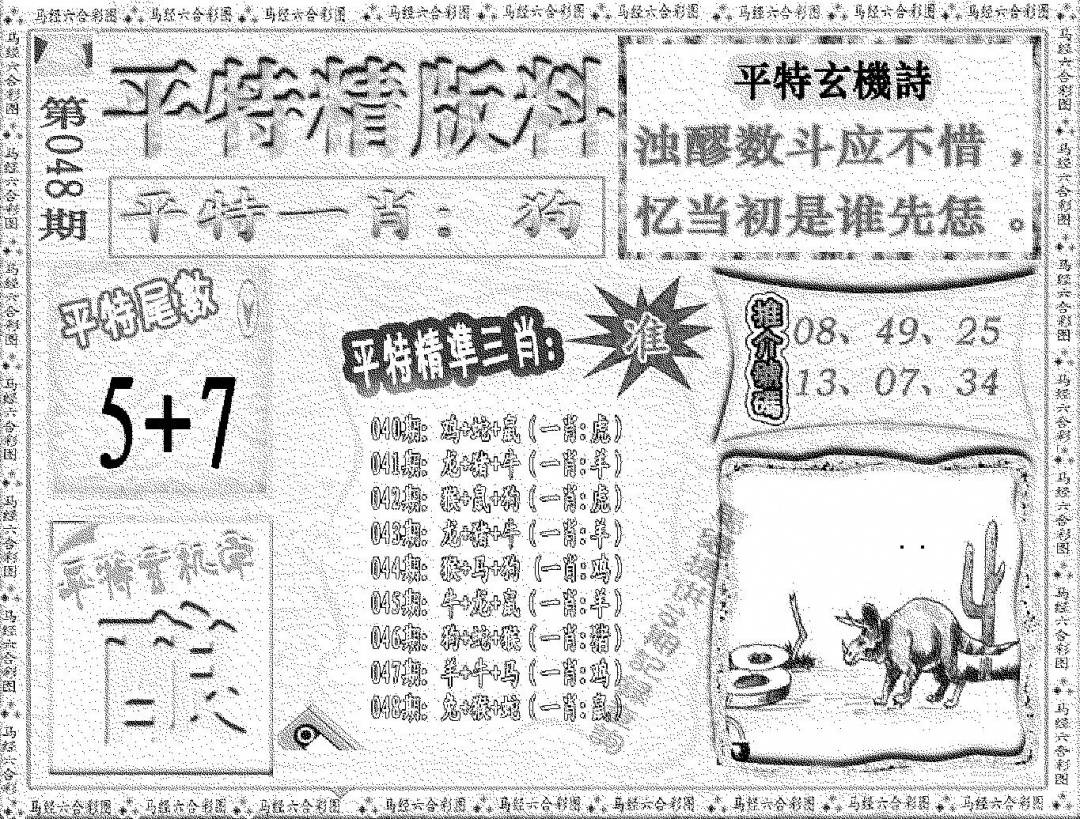 马经六合彩图 马经六合彩图 马经六合彩图 马经六合彩图 马经六合彩图 马经六合彩图 马经六合彩图 马经六合彩图 马经六合彩图
第048期
平特精版料
平特一肖: 狗
平特玄機詩
浊醪数斗应不惜，
忆当初是谁先恁。
平特尾数
5+7
平特精準三肖:
准
040期: 鸡+蛇+鼠(一肖:虎)
041期: 龙+猪+牛(一肖:羊)
042期: 猴+鼠+狗(一肖:虎)
043期: 龙+猪+牛(一肖:羊)
044期: 猴+马+狗(一肖:鸡)
045期: 牛+龙+鼠(一肖:羊)
046期: 狗+蛇+猴(一肖:猪)
047期: 羊+牛+马(一肖:鸡)
048期: 兔+猴+蛇(一肖:鼠)
推介號碼
08、49、25
13、07、34
平特玄机字
马经六合彩图 马经六合彩图 马经六合彩图 马经六合彩图 马经六合彩图 马经六合彩图 马经六合彩图 马经六合彩图 马经六合彩图